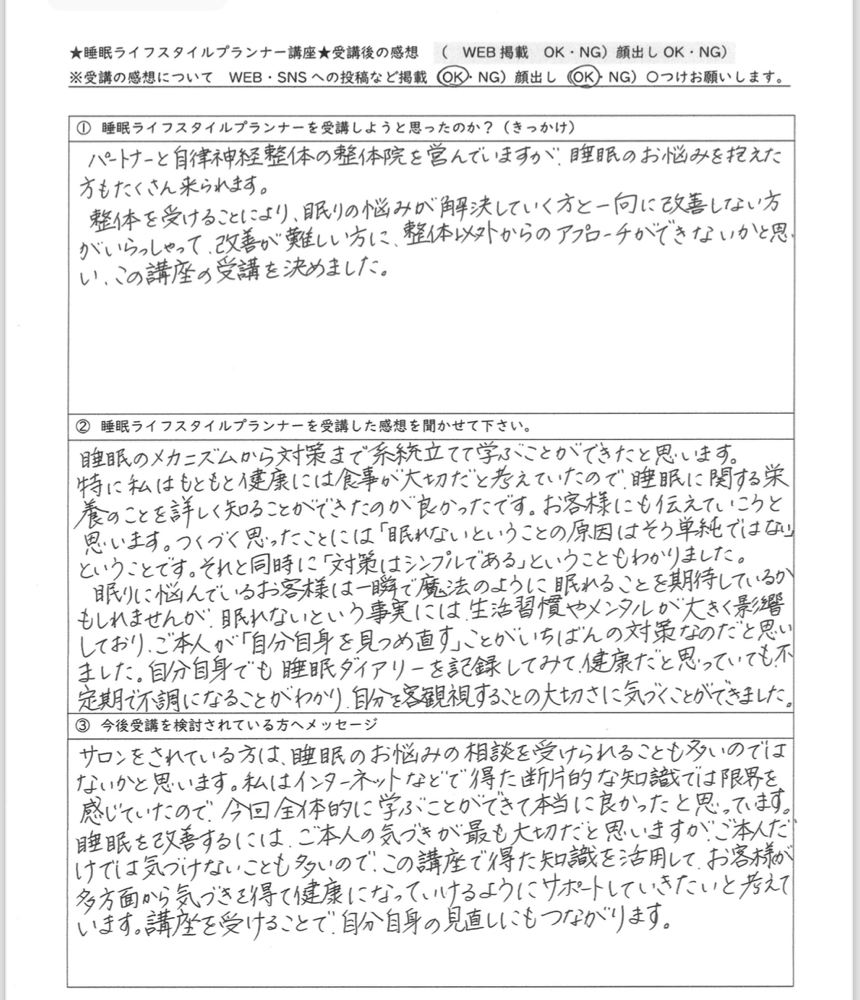 ★睡眠ライフスタイルプランナー講座★受講後の感想 （ WEB掲載 OK・NG）顔出しOK・NG）
※受講の感想について WEB・SNSへの投稿など掲載（OK・NG）顔出し（OK・NG）〇つけお願いします。
① 睡眠ライフスタイルプランナーを受講しようと思ったのか？（きっかけ）
パートナーと自律神経整体の整体院を営んでいますが、睡眠のお悩みを抱えた
方もたくさん来られます。
整体を受けることにより、眠りの悩みが解決していく方と一向に改善しない方
がいらっしゃって、改善が難しい方に、整体以外からのアプローチができないかと思
い、この講座の受講を決めました。
② 睡眠ライフスタイルプランナーを受講した感想を聞かせて下さい。
睡眠のメカニズムから対策まで系統立てて学ぶことができたと思います。
特に私はもともと健康には食事が大切だと考えていたので、睡眠に関する栄
養のことを詳しく知ることができたのが良かったです。お客様にも伝えていこうと
思います。つくづく思ったことには「眠れないということの原因はそう単純ではない」
ということです。それと同時に「対策はシンプルである」ということもわかりました。
眠りに悩んでいるお客様は一瞬で魔法のように眠れることを期待しているか
もしれませんが、眠れないという事実には、生活習慣やメンタルが大きく影響
しており、ご本人が「自分自身を見つめ直す」ことがいちばんの対策なのだと思い
ました。自分自身でも睡眠ダイアリーを記録してみて、健康だと思っていても、不
定期で不調になることがわかり、自分を客観視することの大切さに気づくことができました。
③ 今後受講を検討されている方へメッセージ
サロンをされている方は、睡眠のお悩みの相談を受けられることも多いのでは
ないかと思います。私はインターネットなどで得た断片的な知識では限界を
感じていたので、今回全体的に学ぶことができて本当に良かったと思っています。
睡眠を改善するには、ご本人の気づきが最も大切だと思いますが、ご本人だ
けでは気づけないことも多いので、この講座で得た知識を活用して、お客様が
多方面から気づきを得て健康になっていけるようにサポートしていきたいと考えて
います。講座を受けることで、自分自身の見直しにもつながります。